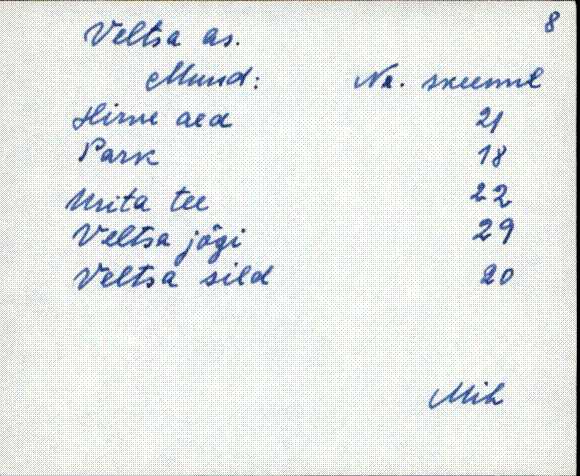 8
Veltsa as.
Muud: Nr. skeemil
Hirve aed 21
Park 18
Urita tee 22
Veltsa jõgi 29
Veltsa sild 20
Mih